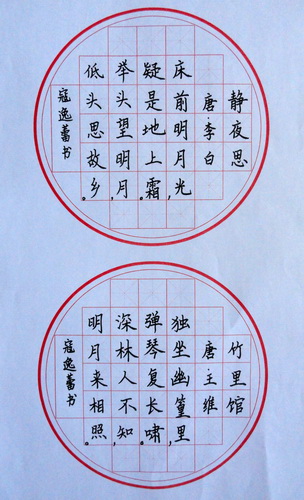 静夜思
唐·李白
床前明月光，
疑是地上霜。
举头望明月，
低头思故乡。
寇逸蕾书
竹里馆
唐·王维
独坐幽篁里，
弹琴复长啸。
深林人不知，
明月来相照。
寇逸蕾书